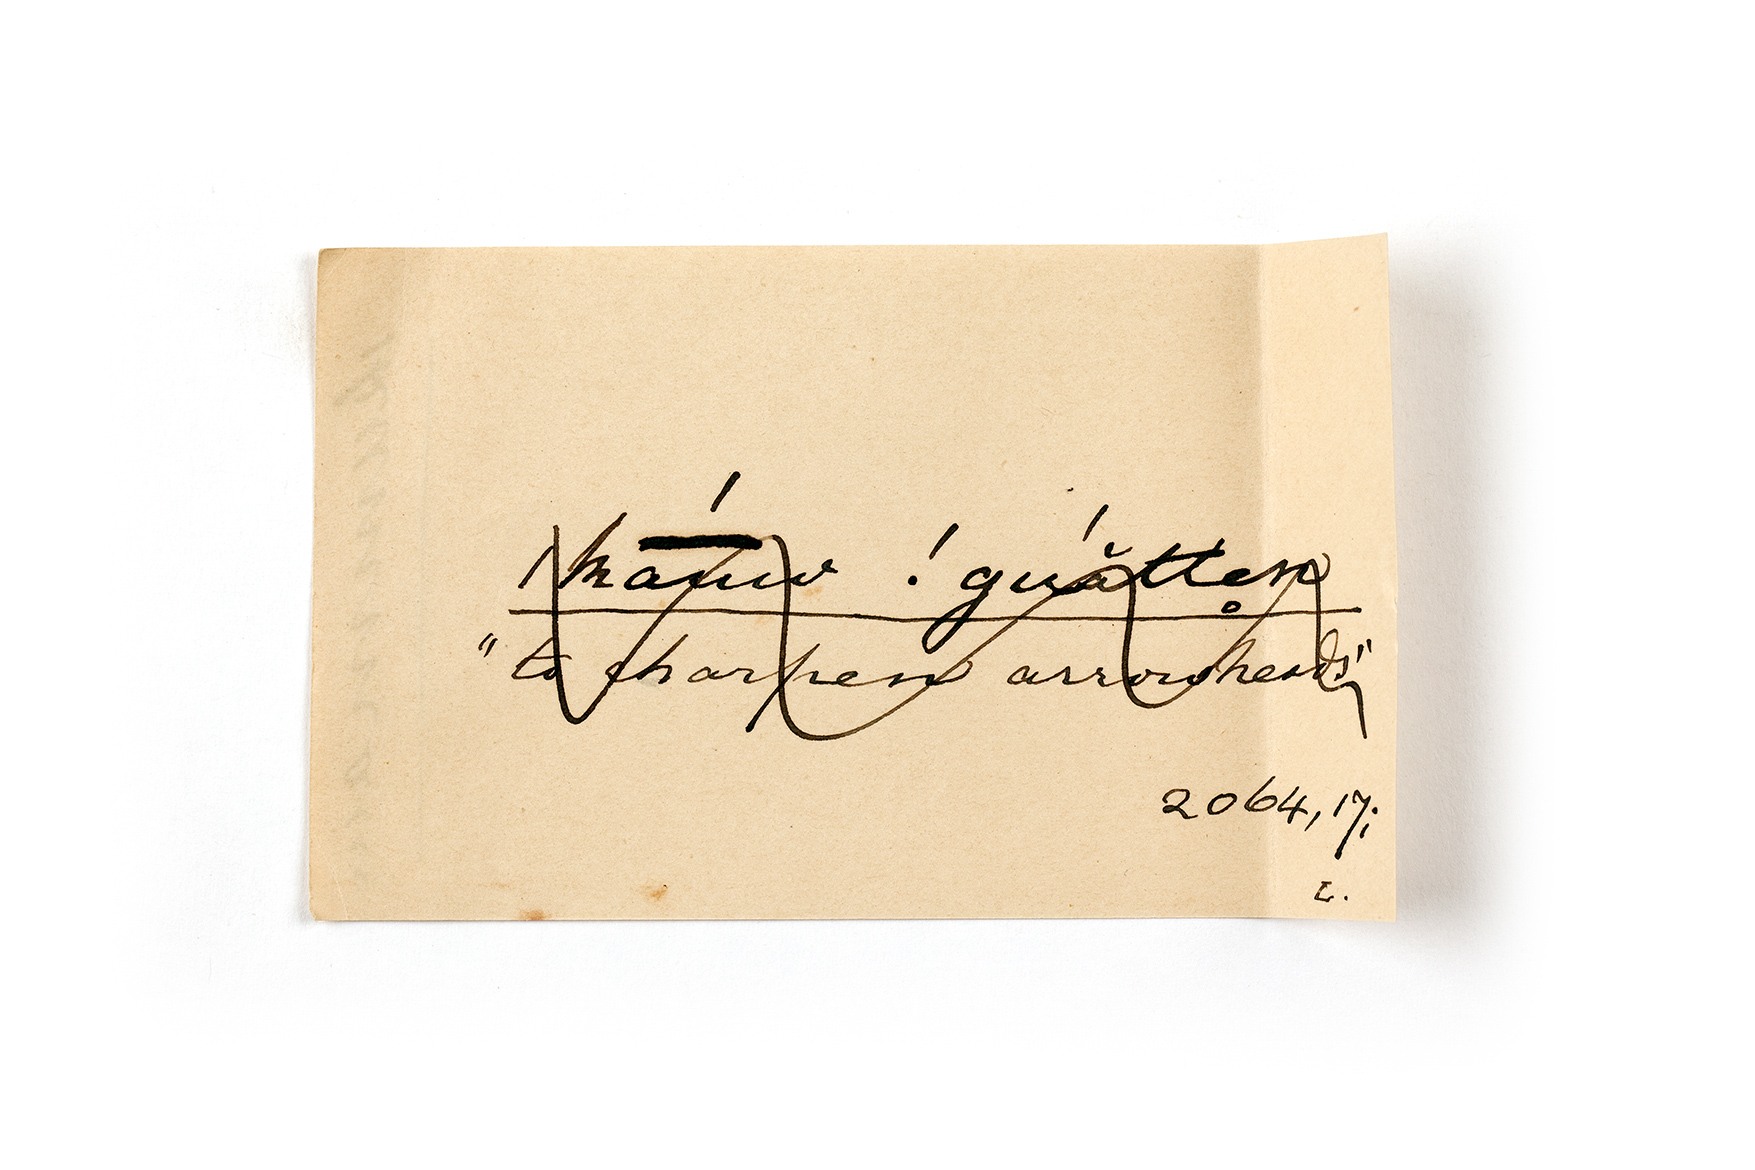 ǀkā́ū !gúátten̥
"to sharpen arrowheads"
2064, 17;
L.